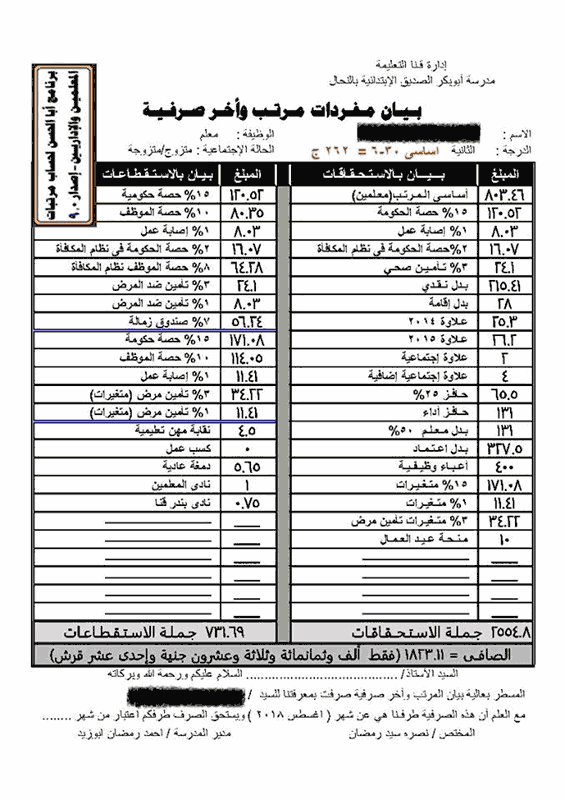 إدارة قنا التعليمة
مدرسة أبوبكر الصديق الإبتدائية بالنحال
برنامج أبا الحسن لحساب مرتبات
المعلمين والإداريين - إصدار ٩.٠
بيان مفردات مرتب وأخر صرفية
الاسم : الوظيفة : معلم
الدرجة : الثانية اساسى ٣٠-٦ = ٢٦٢ ج الحالة الإجتماعية : متزوج/متزوجة
المبلغ بيان بالاستحقاقات المبلغ بيان بالاستقطاعات
٨٠٣.٤٦ أساسى المرتب(معلمين) ١٢٠.٥٢ ١٥% حصة حكومية
١٢٠.٥٢ ١٥% حصة الحكومة ٨٠.٣٥ ١٠% حصة الموظف
٨.٠٣ ١% إصابة عمل ٨.٠٣ ١% إصابة عمل
١٦.٠٧ ٢%حصة الحكومة فى نظام المكافأة ١٦.٠٧ ٢% حصة الحكومة فى نظام المكافأة
٢٤.١ ٣% تأمين صحي ٦٤.٢٨ ٨% حصة الموظف نظام المكافأة
٢١٥.٤١ بدل نقدي ٢٤.١ ٣% تأمين ضد المرض
٢٨ بدل إقامة ٨.٠٣ ١% تأمين ضد المرض
٢٥.٣ علاوة ٢٠١٤ ٥٦.٢٤ ٧% صندوق زمالة
٢٦.٢ علاوة ٢٠١٥ ١٧١.٠٨ ١٥% حصة حكومة
٢ علاوة إجتماعية ١١٤.٠٥ ١٠% حصة الموظف
٤ علاوة إجتماعية إضافية ١١.٤١ ١% إصابة عمل
٦٥.٥ حافز ٢٥% ٣٤.٢٢ ٣% تأمين مرض (متغيرات)
١٣١ حافز أداء ١١.٤١ ١% تأمين مرض (متغيرات)
١٣١ بدل معلم ٥٠% ٤.٥ نقابة مهن تعليمية
٣٢٧.٥ بدل اعتماد ٠ كسب عمل
٤٠٠ أعباء وظيفية ٥.٦٥ دمغة عادية
١٧١.٠٨ ١٥% متغيرات ١ نادى المعلمين
١١.٤١ ١% متغيرات ٠.٧٥ نادى بندر قنا
٣٤.٢٢ ٣% متغيرات تأمين مرض
١٠ منحة عيد العمال
٢٥٥٤.٨ جملة الاستحقاقات ٧٣١.٦٩ جملة الاستقطاعات
الصافى = ١٨٢٣.١١ (فقط ألف وثمانمائة وثلاثة وعشرون جنية وإحدى عشر قرش)
السيد الأستاذ/ ........................................ السلام عليكم ورحمة الله وبركاته
المسطر بعالية بيان المرتب وأخر صرفية صرفت بمعرفتنا للسيد /
مع العلم أن هذه الصرفية طرفنا هي عن شهر ( اغسطس ٢٠١٨ ) ويستحق الصرف طرفكم اعتبار من شهر ........
المختص / نصره سيد رمضان مدير المدرسة / احمد رمضان ابوزيد